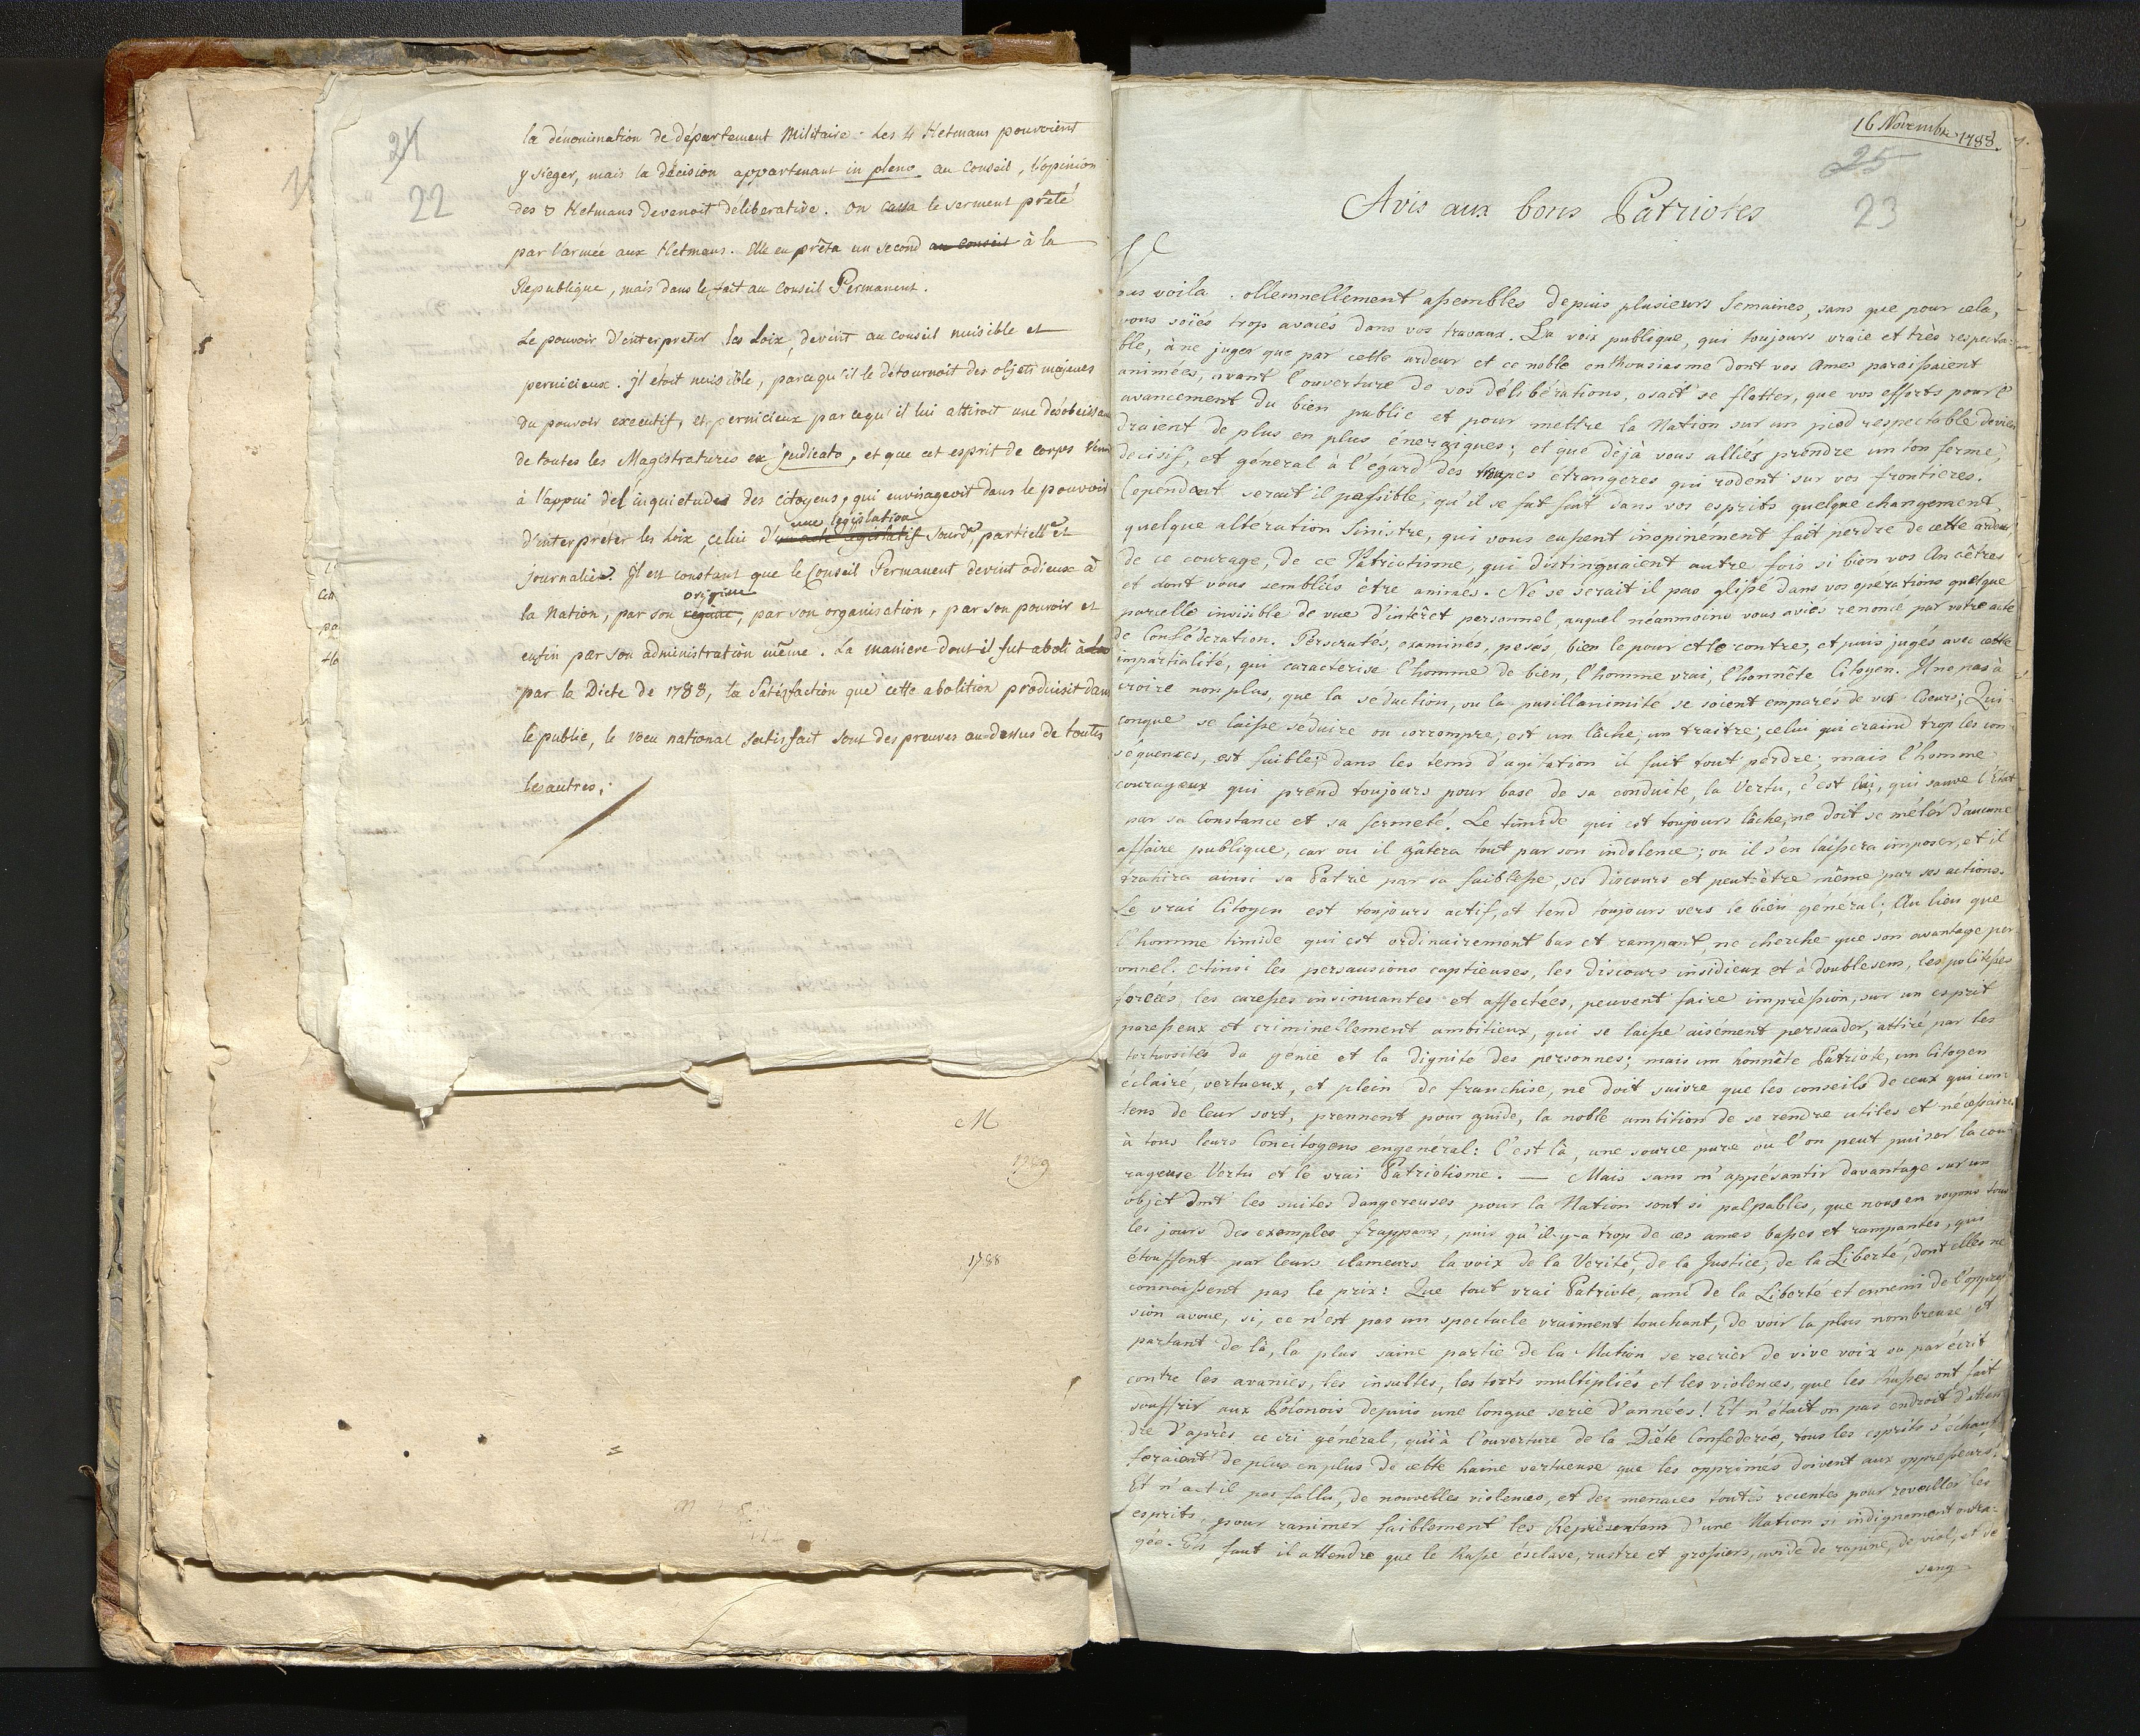 21
22
la dénomination de département Militaire. Les 4 Hetmans pouvoient
y sieger, mais la décision appartenant in pleno au Conseil, l'opinion
des Hetmans devenoit déliberative. On cassa le serment prêté
par l'armée aux Hetmans. Elle en prêta un second au conseil à la
Republique, mais dans le fait au Conseil Permanent.
Le pouvoir d'interpreter les Loix, devint au conseil nuisible et
pernicieux. Il étoit nuisible, parcequ'il le détournoit des objets majeurs
du pouvoir executif, et pernicieux parcequ'il lui attiroit une désobeissan
de toutes les Magistratures ex judicato, et que cet esprit de corps
à l'appui de l'inquietude des citoyens, qui envisageoit dans le pouvoir
une législation
d'interpréter les Loix, celui d'un acte législatif sourde, partielle et
journalière. Il est constant que le Conseil Permanent devint odieux à
origine
la Nation, par son régime, par son organisation, par son pouvoir et
enfin par son administration même. La maniere dont il fut aboli à la
par la Diete de 1788, la Satisfaction que cette abolition produisit dans
le public, le voeu national satisfait sont des preuves au-dessus de toutes
les autres.
M
1789
1788
16 Novembre 1788.
25
23
Avis aux bons Patriotes
Vous voila sollemnellement assemblés depuis plusieurs Semaines, sans que pour cela,
vous soïés trop avancés dans vos travaux. La voix publique, qui toujours vraie et très respecta-
ble, à ne juger que par cette ardeur et ce noble enthousiasme dont vos Ames paraissaient
animées, avant l'ouverture de vos délibérations, osait se flatter, que vos efforts pour l'
avancement du bien public et pour mettre la Nation sur un pied respectable devien
draient de plus en plus énergiques; et que dèjà vous alliés prendre un ton ferme,
decisif, et général à l'égard des troupes étrangeres qui rodent sur vos frontieres.
Cependant serait il possible, qu'il se fut fait dans vos esprits quelque changement,
quelque altération Sinistre, qui vous eussent inopinément fait perdre de cette ardeur,
de ce courage, de ce Patriotisme, qui distinguaient autre fois si bien vos Ancêtres
et dont vous sembliés être animés. Ne se serait il pas glissé dans vos opérations quelque
parcelle invisible de vue d'intérêt personnel, auquel néanmoins vous aviés renoncé par votre acte
de Confédération. Perscrutés, examinés, pesés, bien le pour et le contre, et puis jugés avec cette
impartialité, qui caracterise l'homme de bien, l'homme vrai, l'honnête Citoyen. Il n'e pas à
croire non plus, que la séduction, ou la pusillanimité se soient emparés de vos Coeurs; Qui-
conque se laisse séduire ou corrompre, est un lâche, un traitre; celui qui craind trop les con-
séquences, est faible; dans les tems d'agitation il fait tout perdre; mais l'homme
courageux qui prend toujours pour base de sa conduite, la Vertu, c'est lui, qui sauve l'Etat
par sa Constance et sa fermeté. Le timide qui est toujours lâche, ne doit se mêler d'aucune
affaire publique, car ou il gâtera tout par son indolence; ou il s'en laissera imposer, et il
trahira ainsi sa Patrie par sa faiblesse, ses discours et peut-être même par ses actions.
Le vrai Citoyen est toujours actif, et tend toujours vers le bien général; Au lieu que
l'homme timide qui est ordinairement bas et rampant, ne cherche que son avantage per
onnel. Ainsi les persuasions captieuses, les discours insidieux et à double sens, les politesses
forcées, les caresses insinuantes et affectées, peuvent faire impression, sur un esprit
paresseux et criminellement ambitieux, qui se laisse aisément persuader, attiré par les
tortuosités du génie et la dignité des personnes; mais un honnête Patriote, un Citoyen
éclairé, vertueux, et plein de franchise, ne doit suivre que les conseils de ceux qui con
tens de leur sort, prennent pour guide, la noble ambition de se rendre utiles et nécessaires
à tous leurs Concitoyens en général: C'est là, une source pure où l'on peut puiser la cou-
rageuse Vertu et le vrai Patriotisme. — Mais sans m'appésantir davantage sur un
objet dont les suites dangereuses pour la Nation sont si palpables, que nous en voyons tous
les jours des exemples frappans, puis qu'il-y-a trop de ces ames basses et rampantes, qui
étouffent par leurs clameurs la voix de la Vérité, de la Justice, de la Liberté, dont elles ne
connaissent pas le prix: Que tout vrai Patriote, ami de la Liberté et ennemi de l'oppres
sion avoue, si, ce n'est pas un spectacle vraiment touchant, de voir la plus nombreuse et
partant de là, la plus saine partie de la Nation se recrier de vive voix ou par écrit
contre les avanies, les insultes, les torts multipliés et les violences, que les Russes ont fait
souffrir aux Polonois depuis une longue serie d'années! Et n'était on pas en droit d'atten-
dre d'après ce cri général, qu'à l'ouverture de la Diéte Conféderée, tous les esprits s'échauf
feraient de plus en plus de cette haine vertueuse que les opprimés doivent aux oppresseurs!
Et n'a-t-il pas fallu, de nouvelles violences, et des menaces toutes recentes pour reveiller les
esprits, pour ranimer faiblement les Représentans d'une Nation si indignement outra-
gée. Et faut il attendre que le Russe ésclave, rustre et grossiers, avide de rapine, de viol, et de
sang